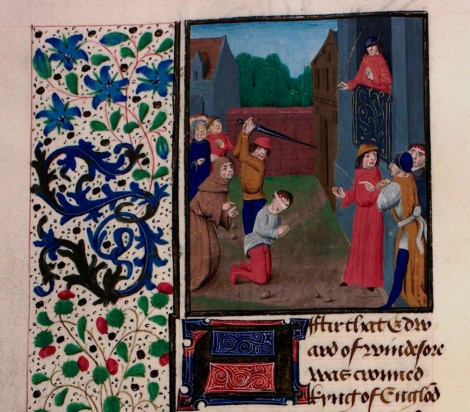 Aftir that Edw
ard of windesore
was crouned
kyng of Englōd